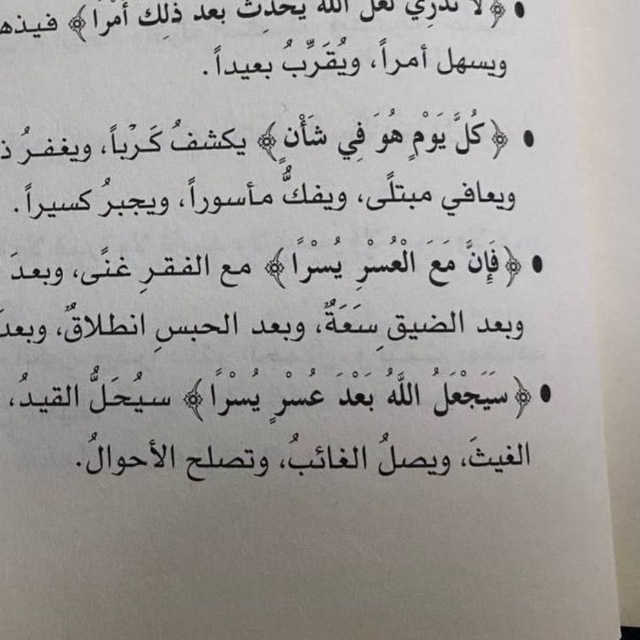 • ﴿لَا تَدْرِي لَعَلَّ اللَّهَ يُحْدِثُ بَعْدَ ذَلِكَ أَمْرًا﴾
ويسهل أمراً، ويُقَرِّبُ بعيداً.
• ﴿كُلَّ يَوْمٍ هُوَ فِي شَأْنٍ﴾ يكشفُ كَرْباً، ويغفرُ
ويعافي مبتلًى، ويفكُّ مأسوراً، ويجبرُ كسيراً.
• ﴿فَإِنَّ مَعَ الْعُسْرِ يُسْرًا﴾ مع الفقرِ غنًى، وبعدَ
وبعد الضيقِ سَعَةٌ، وبعد الحبسِ انطلاقٌ، وبعدَ
• ﴿سَيَجْعَلُ اللَّهُ بَعْدَ عُسْرٍ يُسْرًا﴾ سيُحَلُّ القيدُ،
الغيثَ، ويصلُ الغائبُ، وتصلح الأحوالُ.